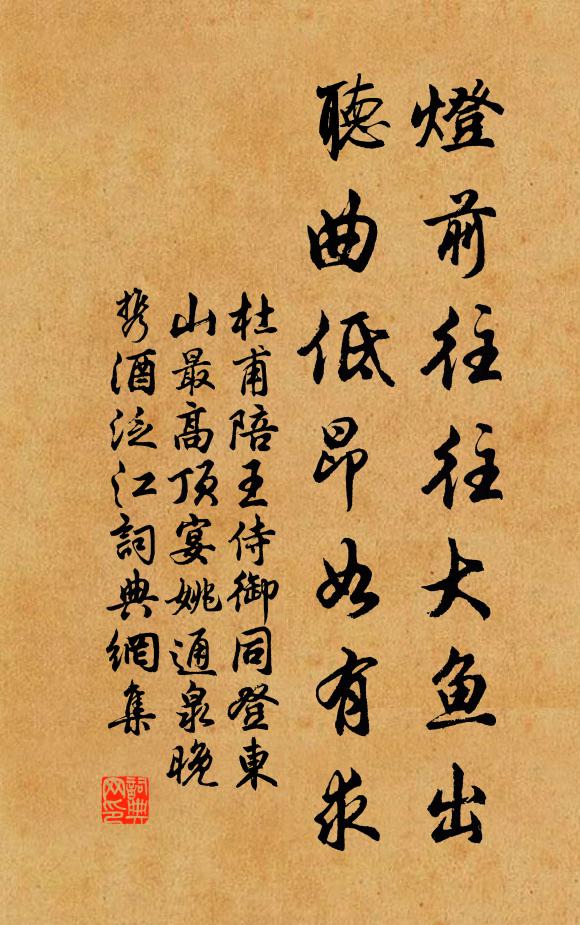 燈前往往大魚出
聽曲低昂如有求
杜甫陪王侍御同登東
山最高頂宴姚通泉晚
携酒泛江詞典網集
詞典
网印